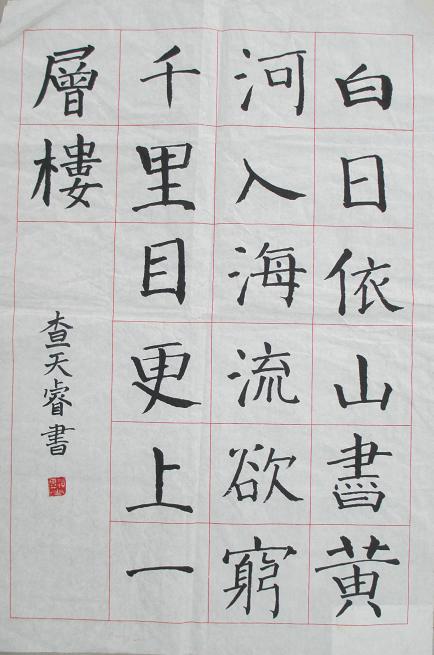 白日依山盡黃
河入海流欲窮
千里目更上一
層樓
查天睿書